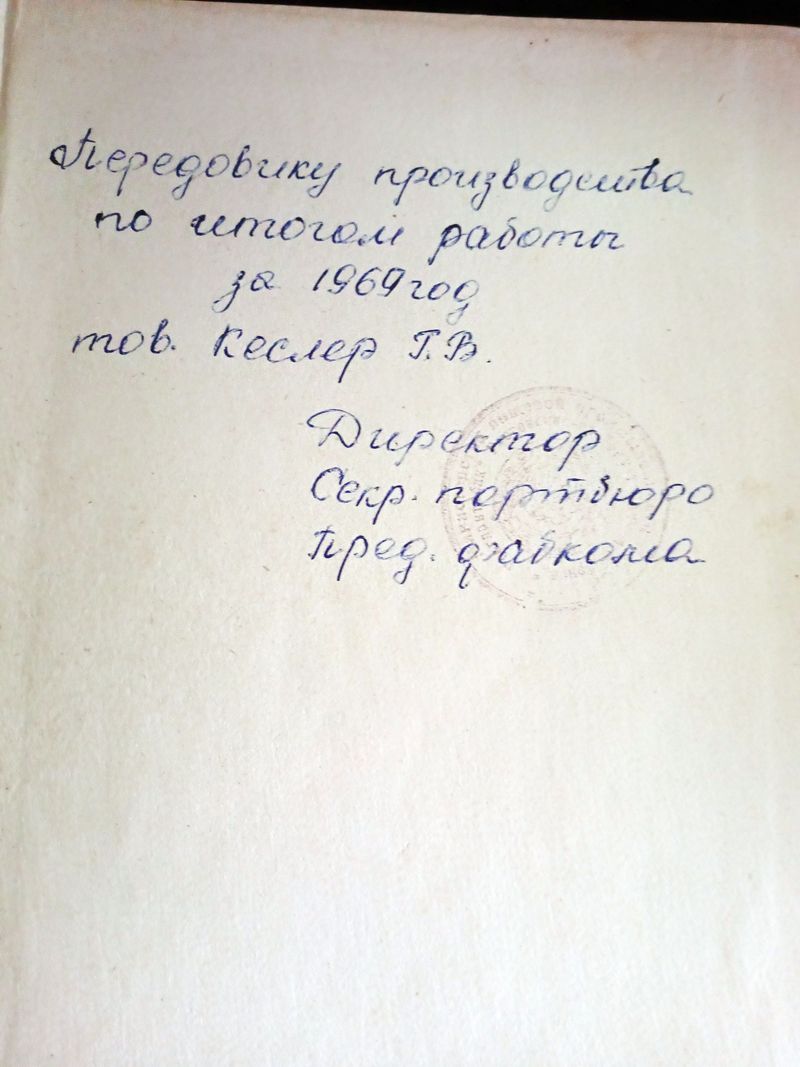 Передовику производства
по итогом работы
за 1969 год
тов. Кеслер Г.В.
Директор
Секр. партбюро
Пред. фабкома